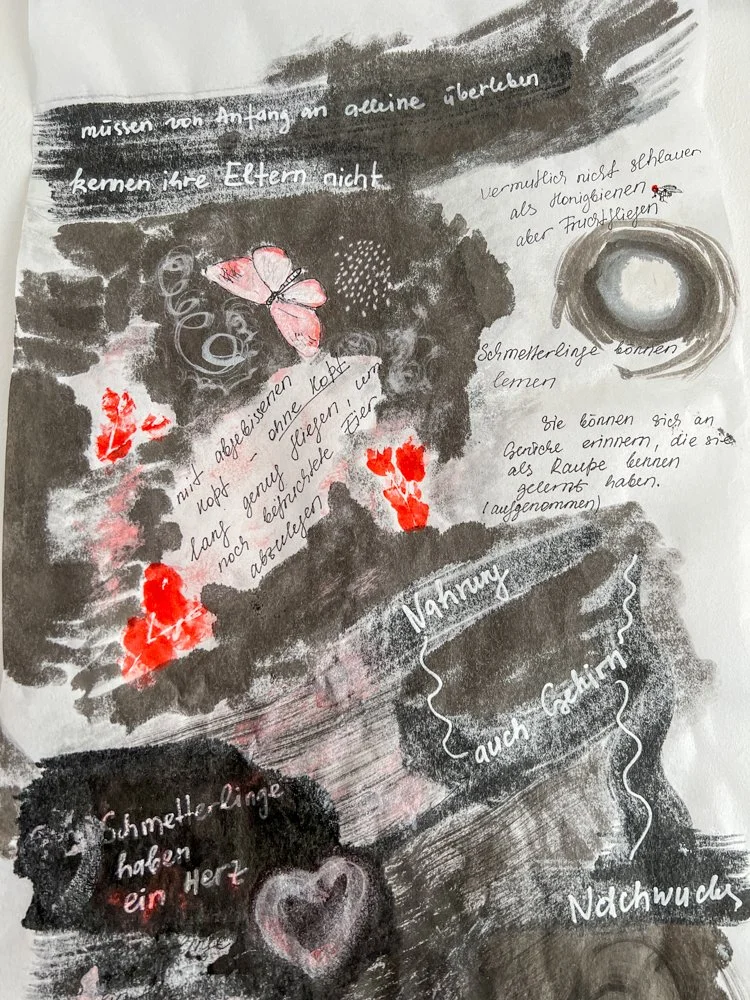 müssen von Anfang an alleine überleben
kennen ihre Eltern nicht
vermutlich nicht schlauer
als Honigbienen
aber Fruchtfliegen
Schmetterlinge können
lernen
Sie können sich an
Gerüche erinnern, die sie
als Raupe kennen
gelernt haben.
(aufgenommen)
mit abgebissenen
Kopf - ohne Kopf
lang genug fliegen, um
noch befruchtete Eier
abzulegen
Nahrung
auch Gehirn
Schmetterlinge
haben
ein Herz
Nachwuchs